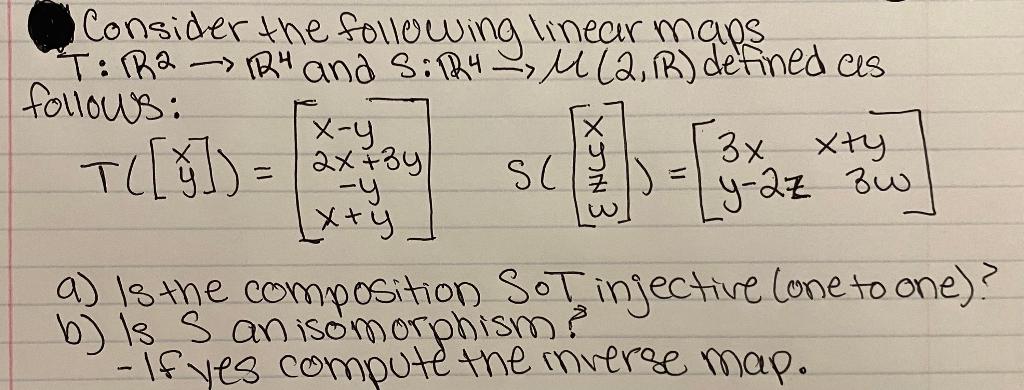 Consider the following linear maps
T: ℝ2 → ℝ4 and S: ℝ4 → M(2, ℝ) defined as
follows:
T([x y]) = [x-y 2x+3y -y x+y] S([x y z w]) = [3x x+y y-2z 3w]
a) Is the composition S∘T injective (one to one)?
b) Is S an isomorphism?
- If yes compute the inverse map.